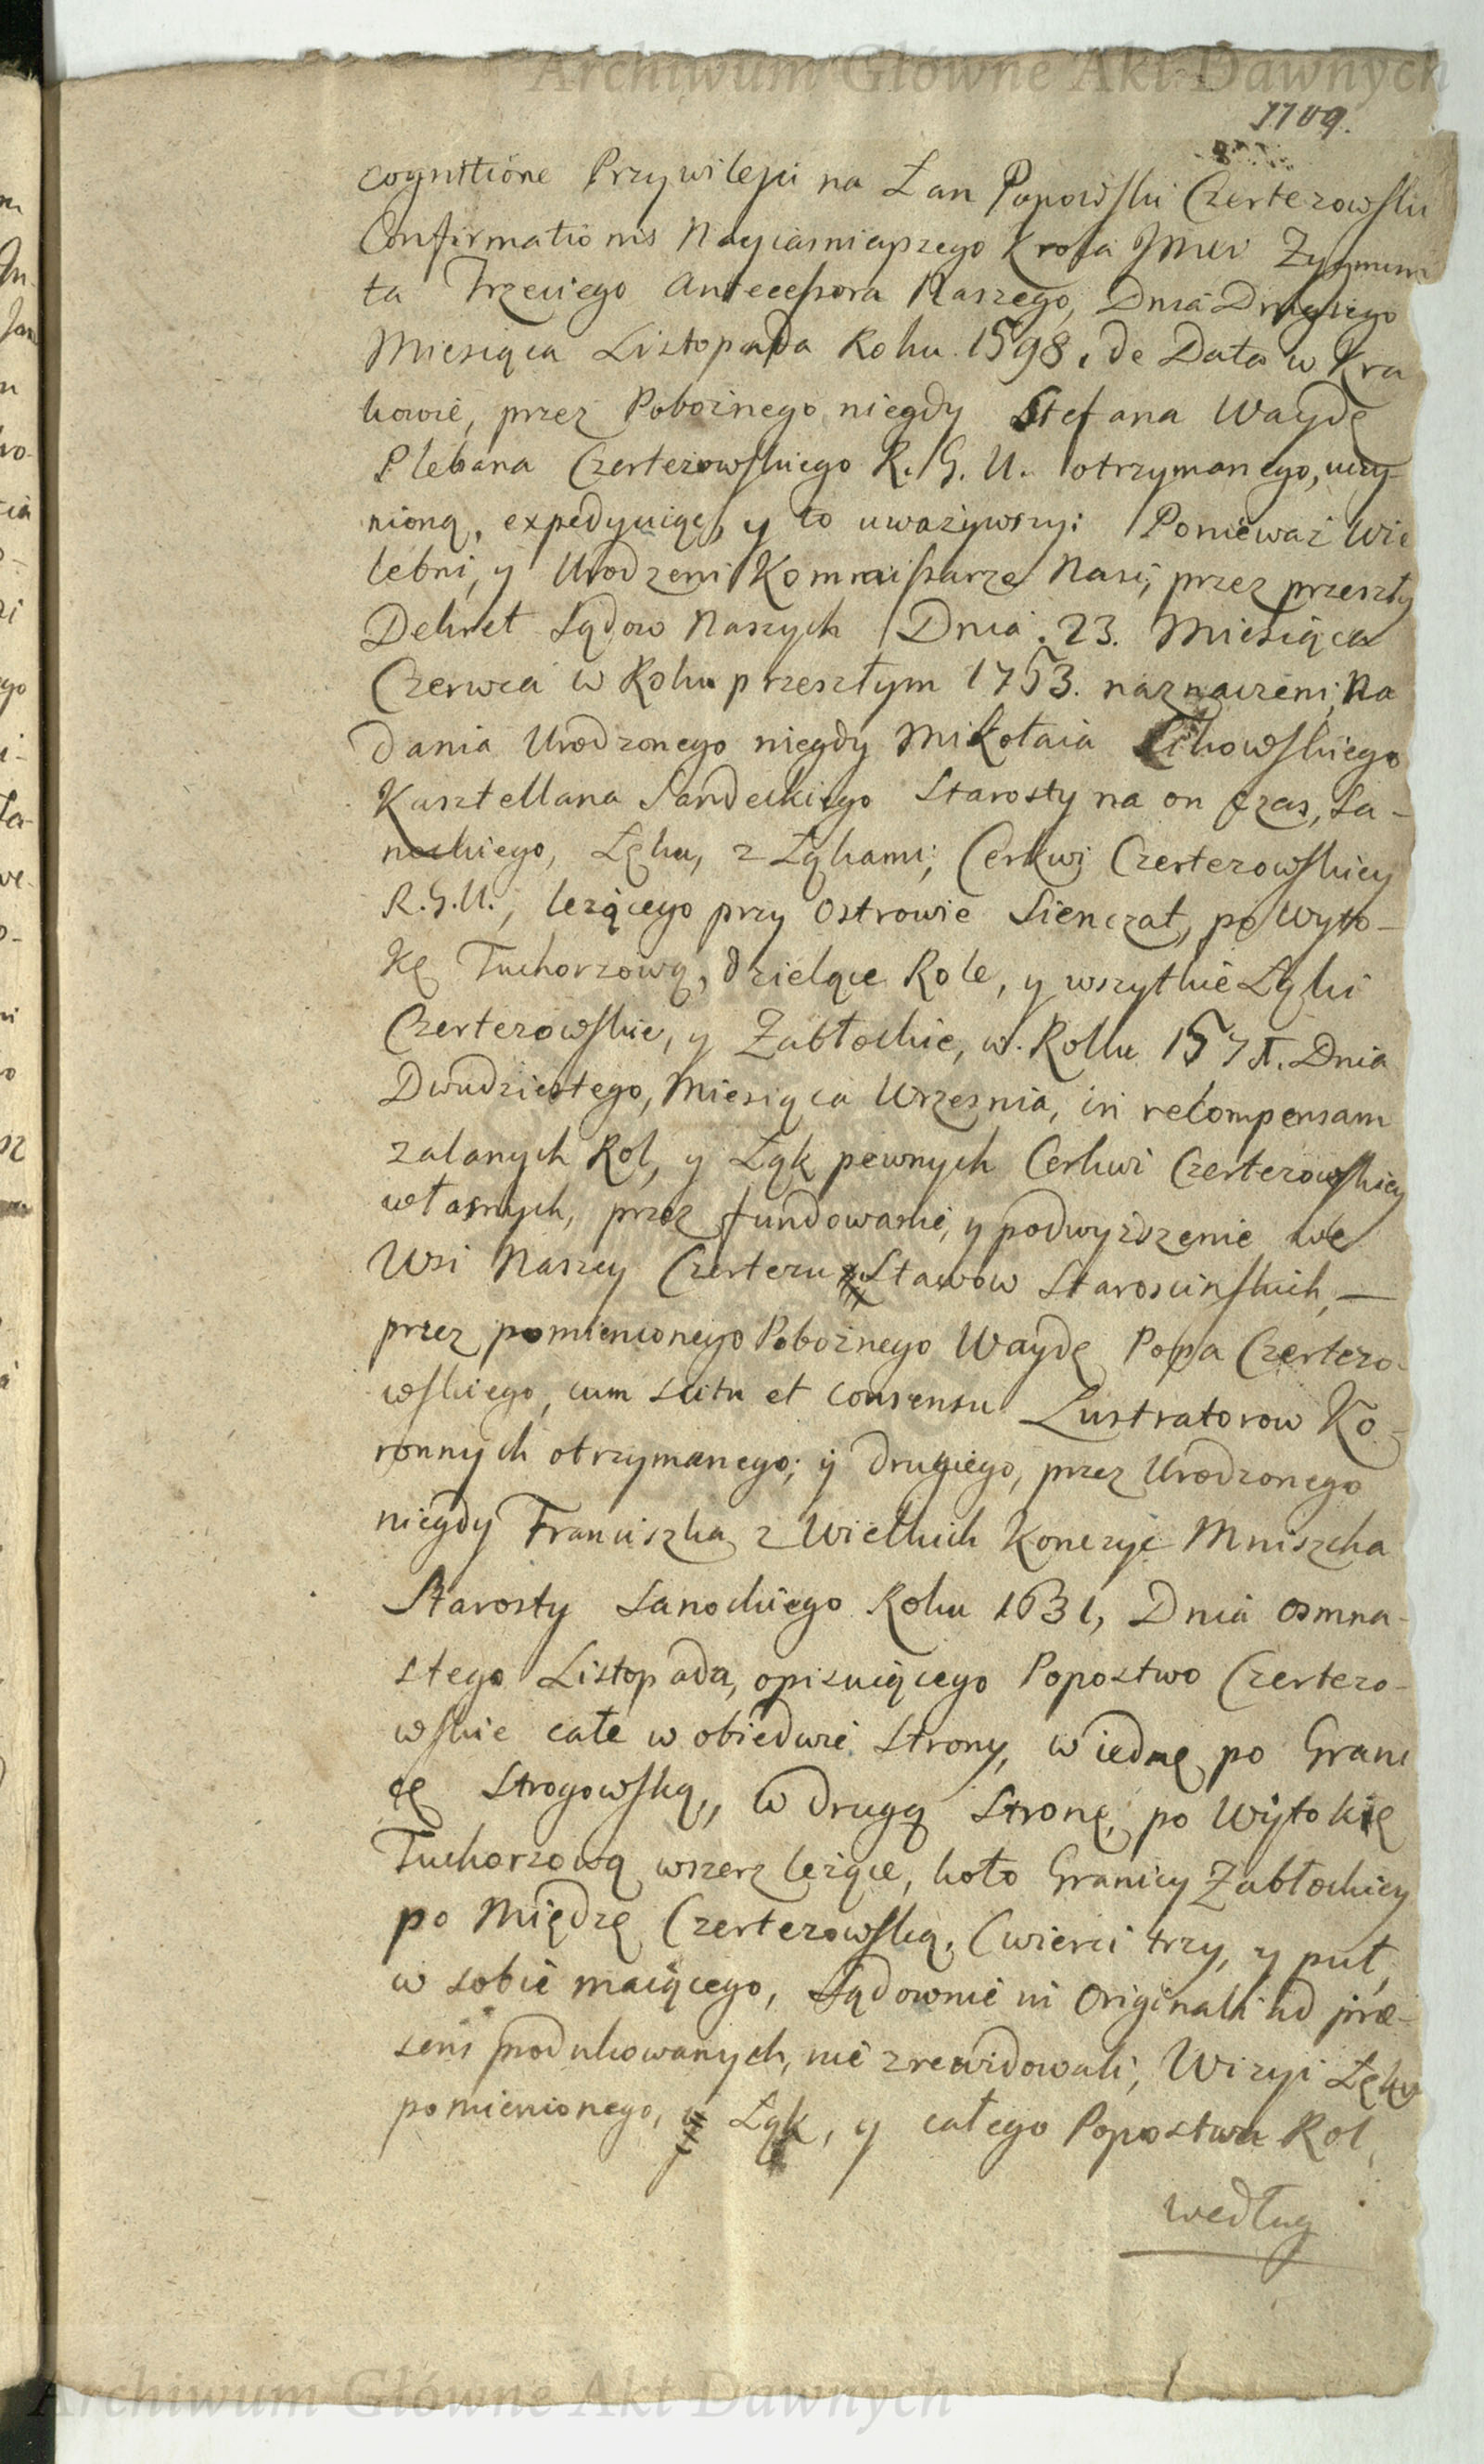 Archiwum Główne Akt Dawnych
1709.
cognitione Przywileju na Łan Popowski Czerterowski
Confirmationis Nayiasnieyszego Krola Jmci Zygmun
ta Trzeciego Antecessora Naszego, Dnia Drugiego
Miesiąca Listopada Roku 1598, de Data w Kra
kowie, przez Pobożnego niegdy Stefana Waydę
Plebana Czerterowskiego R. G. U. otrzymanego, uczy-
nioną, expedyuiąc, y to uważywszy: Ponieważ Wie
lebni, y Urodzeni Kommissarze Nasi, przez przeszły
Dekret Sądow Naszych Dnia .23. Miesiąca
Czerwca w Roku przeszłym 1753. naznaczeni, Na
dania Urodzonego niegdy Mikołaia Cikowskiego
Kasztellana Sandeckiego Starosty na on czas, Sa-
nockiego, Łęku, z Łąkami, Cerkwi Czerterowskiey
R.G.U., leżącego przy Ostrowie Sienczał, po Wyto-
kę Tuchorzową, dzielące Role, y wszytkie Łąki
Czerterowskie, y Zabłockie, w. Roku Dnia
Dwudziestego, Miesiąca Wrzesnia, in recompensam
zalanych Rol, y Łąk pewnych Cerkwi Czerterowskiey
własnych, przez fundowanie, y podwyższenie we
Wsi Naszey Czerteru Stawow Staroscinskich, —
przez pomienionego Pobożnego Waydę Popa Czertero-
wskiego, cum scitu et consensu Lustratorow Ko-
ronnych otrzymanego; y drugiego, przez Urodzonego
niegdy Franciszka z Wielkich Konczyc Mniszcha
Starosty Sanockiego Roku 1631, Dnia osmna-
stego Listopada, opisuiącego Popostwo Czertero-
wskie całe w obiedwie strony, w iednę po Grani
cę Strogowską, w drugą stronę, po Wytokię
Tuchorzową wszerz leżące, koło Granicy Zabłockiey
po Międzę Czerterowską, Cwierci trzy, y puł,
w sobie maiącego, Sądownie in Originali ad præ-
sens produkowanych, nie zrewidowali, Wizyi Łęku
pomienionego, Łąk, y całego Popostwa Rol,
według
Archiwum Główne Akt Dawnych